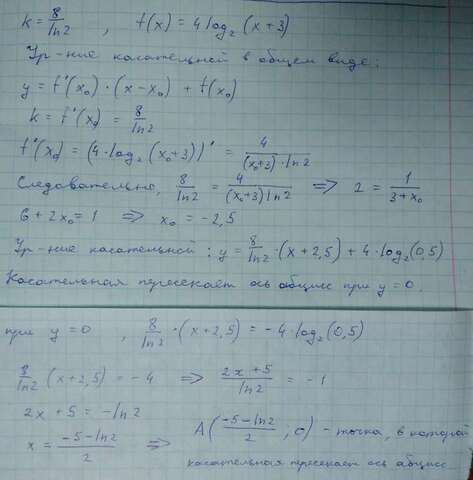 k = 8/ln2 , f(x) = 4 log₂ (x + 3)
Ур-ние касательной в общем виде:
y = f'(x₀) · (x - x₀) + f(x₀)
k = f'(x₀) = 8/ln2
f'(x₀) = (4 · log₂ (x₀ + 3))' = 4/((x₀+3) · ln2)
Следовательно, 8/ln2 = 4/((x₀+3) ln2) ⇒ 2 = 1/(3 + x₀)
6 + 2x₀ = 1 ⇒ x₀ = -2,5
Ур-ние касательной : y = 8/ln2 · (x + 2,5) + 4 · log₂(0,5)
Касательная пересекает ось абцисс при y = 0.
при y = 0 , 8/ln2 · (x + 2,5) = -4 · log₂ (0,5)
8/ln2 (x + 2,5) = -4 ⇒ (2x + 5)/ln2 = -1
2x + 5 = -ln2
x = (-5 - ln2)/2 ⇒ A((-5 - ln2)/2 ; 0) - точка, в которой
касательная пересекает ось абцисс